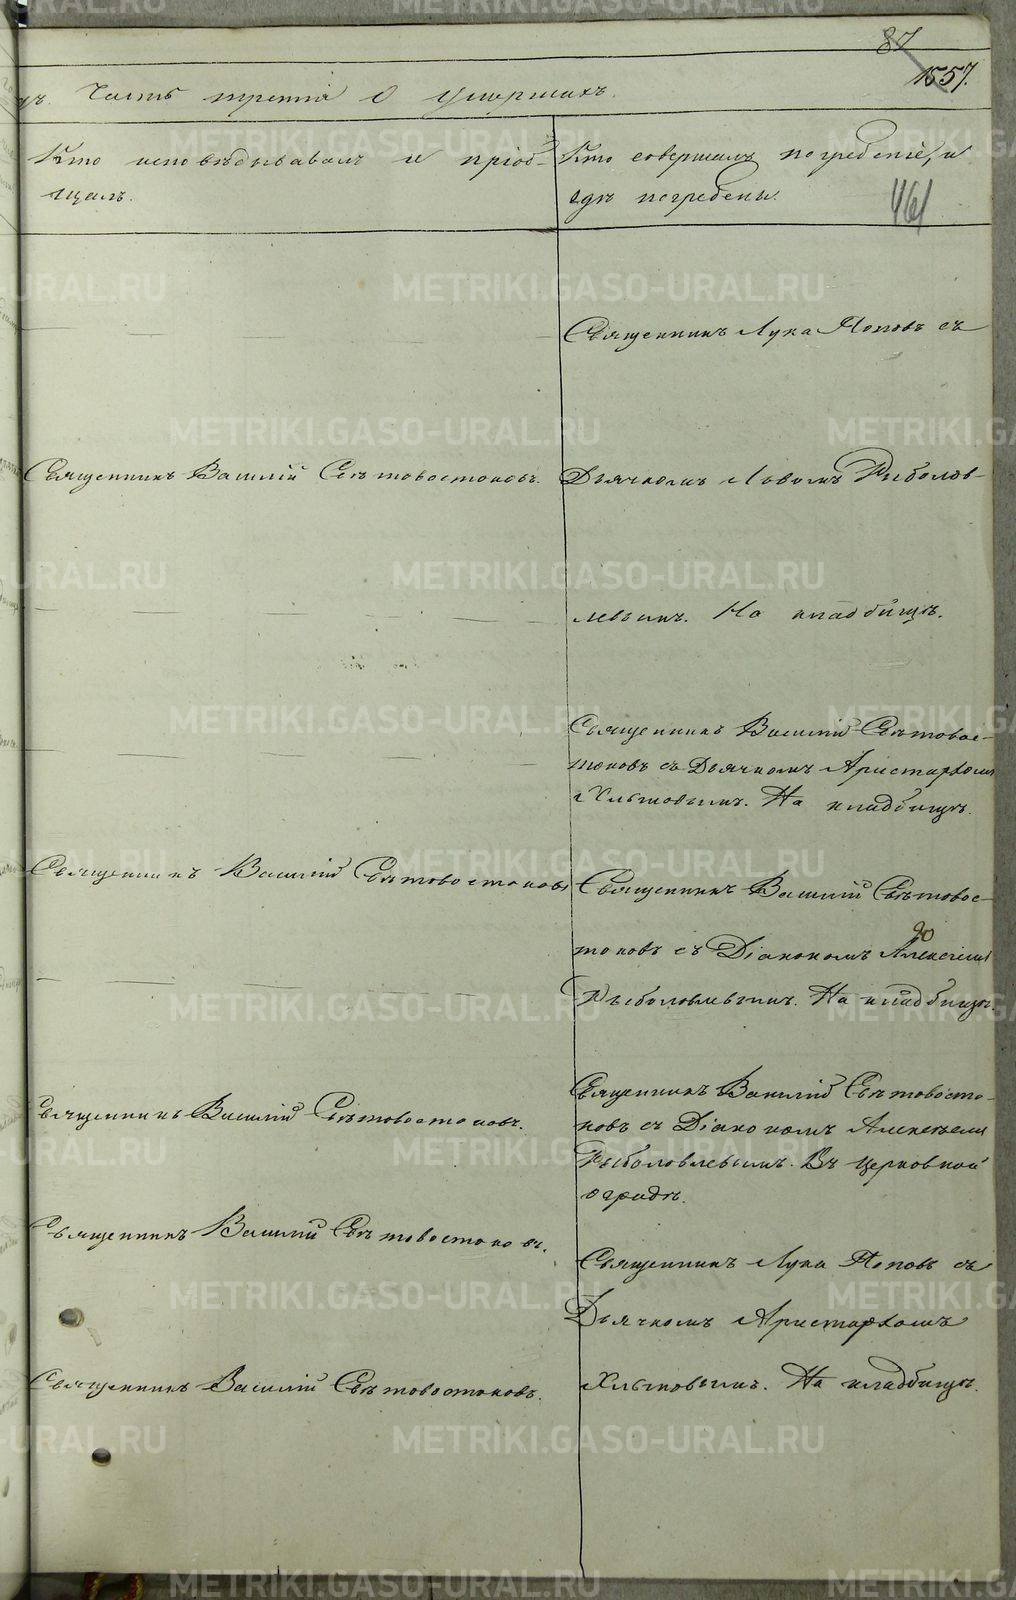 87
1557.
461
Часть третія О умершихъ.
Кто исповѣдывалъ и пріоб-
щалъ.
Кто совершалъ погребеніе, и
гдѣ погребены.
Священникъ Лука Поповъ съ
Священникъ Василій Свѣтовостоковъ.
Дьячкомъ Львомъ Рыболов-
левымъ. На кладбищѣ.
Священникъ Василій Свѣтовос-
токовъ съ Дьячкомъ Аристархомъ
Хлыновымъ. На кладбищѣ.
Священникъ Василій Свѣтовостоковъ
Священникъ Василій Свѣтовос-
токовъ съ Діакономъ Алексіемъ
Рыболовлевымъ. На кладбищѣ.
Священникъ Василій Свѣтовосто-
ковъ съ Діакономъ Алексѣемъ
Рыболовлевымъ. Въ церковной
оградѣ.
Священникъ Василій Свѣтовостоковъ.
Священникъ Василій Свѣтовостоковъ.
Священникъ Лука Поповъ съ
Дьячкомъ Аристархомъ
Хлыновымъ. На кладбищѣ.
Священникъ Василій Свѣтовостоковъ.
METRIKI.GASO-URAL.RU